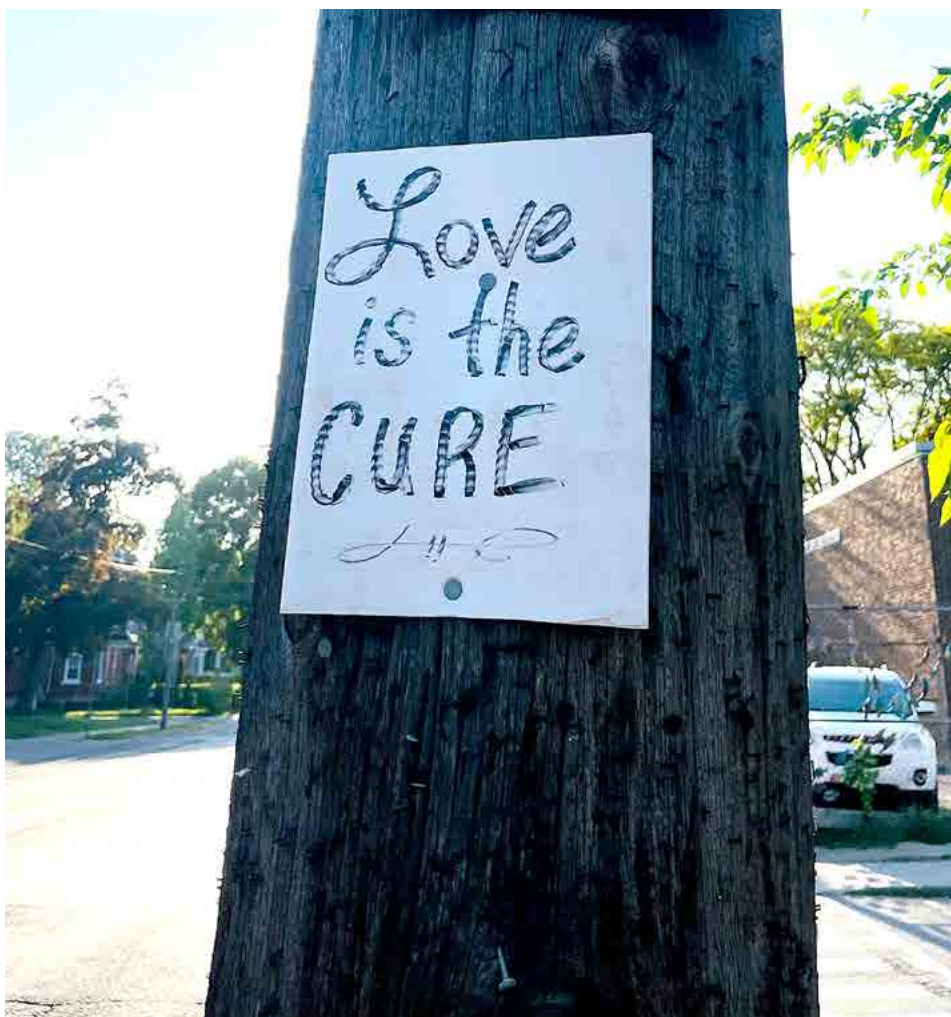 Love
is the
CURE